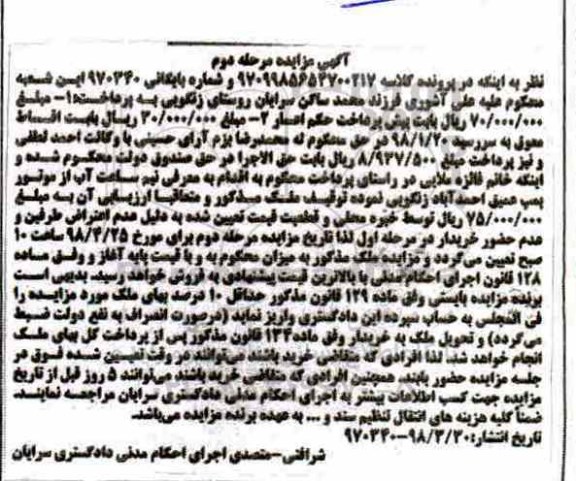 آگهی مزایده مرحله دوم
نظر به اینکه در پرونده کلاسه ۹۷۰۹۹۸۵۶۵۴۷۰۰۲۱۷ و شماره بایگانی ۹۷۰۳۴۰ این شعبه
محکوم علیه علی آشوری فرزند محمد ساکن سرایان روستای زنگویی به پرداخت:۱- مبلغ
۷۰/۰۰۰/۰۰۰ ریال بابت پیش پرداخت حکم اعسار ۲- مبلغ ۳۰/۰۰۰/۰۰۰ ریال بابت اقساط
معوق به سررسید ۹۸/۱/۲۰ در حق محکوم له محمدرضا بزم آرای حسینی با وکالت احمد لطفی
و نیز پرداخت مبلغ ۸/۹۳۷/۵۰۰ ریال بابت حق الاجرا در حق صندوق دولت محکوم شده و
اینکه خانم فائزه ملایی در راستای پرداخت محکوم به اقدام به معرفی نیم ساعت آب از موتور
پمپ عمیق احمدآباد زنگویی نموده توقیف ملک مذکور و متعاقبا ارزیابی آن به مبلغ
۷۵/۰۰۰/۰۰۰ ریال توسط خبره محلی و قطعیت قیمت تعیین شده به دلیل عدم اعتراض طرفین و
عدم حضور خریدار در مرحله اول لذا تاریخ مزایده مرحله دوم برای مورخ ۹۸/۴/۲۵ ساعت ۱۰
صبح تعیین می‌گردد و مزایده ملک مذکور به میزان محکوم به و با قیمت پایه آغاز و وفق ماده
۱۲۸ قانون اجرای احکام مدنی با بالاترین قیمت پیشنهادی به فروش خواهد رسید. بدیهی است
برنده مزایده بایستی وفق ماده ۱۲۹ قانون مذکور حداقل ۱۰ درصد بهای ملک مورد مزایده را
فی المجلس به حساب سپرده این دادگستری واریز نماید (درصورت انصراف به نفع دولت ضبط
می‌گردد) و تحویل ملک به خریدار وفق ماده۱۳۴ قانون مذکور پس از پرداخت کل بهای ملک
انجام خواهد شد. لذا افرادی که متقاضی خرید باشند می‌توانند در وقت تعیین شده فوق در
جلسه مزایده حضور یابند. همچنین افرادی که متقاضی خرید باشند می‌توانند ۵ روز قبل از تاریخ
مزایده جهت کسب اطلاعات بیشتر به اجرای احکام مدنی دادگستری سرایان مراجعه نمایند.
ضمناً کلیه هزینه های انتقال تنظیم سند و ... به عهده برنده مزایده می‌باشد.
تاریخ انتشار:۹۸/۳/۳۰-۹۷۰۳۴۰
شرافتی-متصدی اجرای احکام مدنی دادگستری سرایان